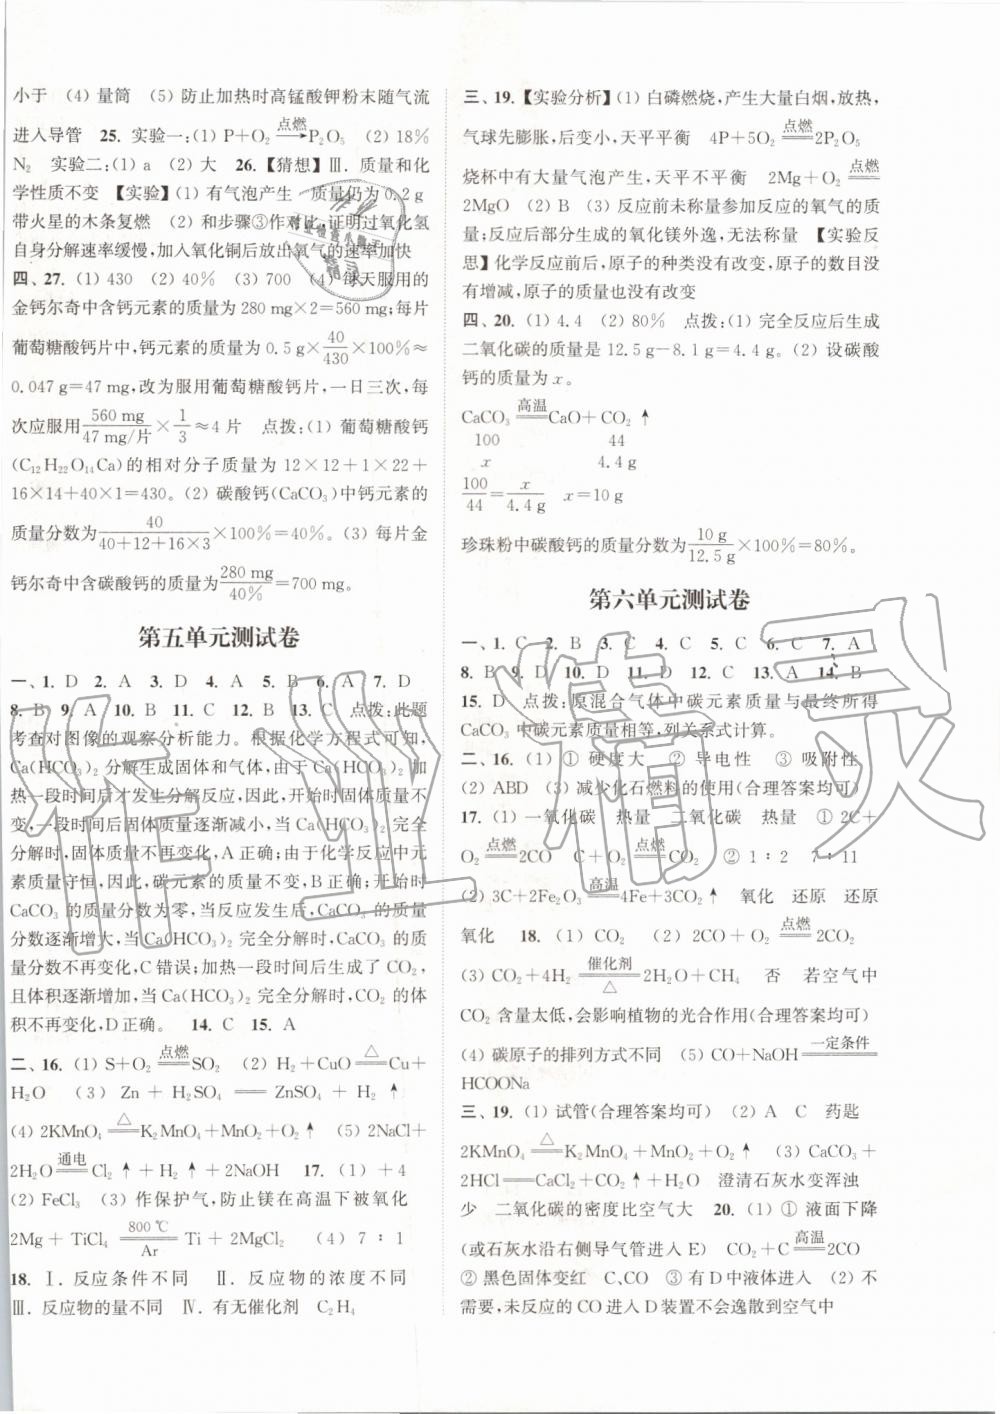 小于 (4) 量筒 (5) 防止加热时高锰酸钾粉末随气流
进入导管 25. 实验一:(1) P+O₂ 点燃→ P₂O₅ (2) 18%
N₂ 实验二:(1) a (2) 大 26.【猜想】Ⅲ. 质量和化
学性质不变 【实验】(1) 有气泡产生 质量仍为0.2 g
带火星的木条复燃 (2) 和步骤③作对比,证明过氧化氢
自身分解速率缓慢,加入氧化铜后放出氧气的速率加快
四、27. (1) 430 (2) 40% (3) 700 (4) 每天服用的
金钙尔奇中含钙元素的质量为 280 mg×2=560 mg;每片
葡萄糖酸钙片中,钙元素的质量为 0.5 g×40/430×100%≈
0.047 g=47 mg,改为服用葡萄糖酸钙片,一日三次,每
次应服用 560 mg/47 mg/片 × 1/3 ≈4 片 点拨:(1) 葡萄糖酸钙
(C₁₂H₂₂O₁₄Ca)的相对分子质量为 12×12+1×22+
16×14+40×1=430。(2) 碳酸钙(CaCO₃)中钙元素的
质量分数为 40/40+12+16×3 ×100%=40%。(3) 每片金
钙尔奇中含碳酸钙的质量为 280 mg/40% =700 mg。
第五单元测试卷
一、1. D 2. A 3. D 4. A 5. B 6. A 7. D
8. B 9. A 10. B 11. B 12. B 13. C 点拨:此题
考查对图像的观察分析能力。根据化学方程式可知,
Ca(HCO₃)₂ 分解生成固体和气体,由于 Ca(HCO₃)₂ 加
热一段时间后才发生分解反应,因此,开始时固体质量不
变,一段时间后固体质量逐渐减小,当 Ca(HCO₃)₂ 完全
分解时,固体质量不再变化,A 正确;由于化学反应中元
素质量守恒,因此,碳元素的质量不变,B正确;开始时
CaCO₃ 的质量分数为零,当反应发生后,CaCO₃ 的质量
分数逐渐增大,当 Ca(HCO₃)₂ 完全分解时,CaCO₃ 的质
量分数不再变化,C 错误;加热一段时间后生成了 CO₂,
且体积逐渐增加,当 Ca(HCO₃)₂ 完全分解时,CO₂ 的体
积不再变化,D正确。 14. C 15. A
二、16. (1) S+O₂ 点燃═ SO₂ (2) H₂+CuO △═ Cu+
H₂O (3) Zn + H₂SO₄ ═ ZnSO₄ + H₂ ↑
(4) 2KMnO₄ △═ K₂MnO₄+MnO₂+O₂ ↑ (5) 2NaCl+
2H₂O 通电═ Cl₂ ↑ + H₂ ↑ +2NaOH 17. (1) +4
(2) FeCl₃ (3) 作保护气,防止镁在高温下被氧化
2Mg + TiCl₄ 800 ℃═Ar Ti + 2MgCl₂ (4) 7 : 1
18. Ⅰ. 反应条件不同 Ⅱ. 反应物的浓度不同
Ⅲ. 反应物的量不同 Ⅳ. 有无催化剂 C₂H₄
三、19.【实验分析】(1) 白磷燃烧,产生大量白烟,放热,
气球先膨胀,后变小,天平平衡 4P+5O₂ 点燃═ 2P₂O₅
烧杯中有大量气泡产生,天平不平衡 2Mg+O₂ 点燃═
2MgO (2) B (3) 反应前未称量参加反应的氧气的质
量;反应后部分生成的氧化镁外逸,无法称量 【实验反
思】化学反应前后,原子的种类没有改变,原子的数目没
有增减,原子的质量也没有改变
四、20. (1) 4.4 (2) 80% 点拨:(1) 完全反应后生成
二氧化碳的质量是 12.5 g-8.1 g=4.4 g。(2) 设碳酸
钙的质量为 x。
CaCO₃ 高温═ CaO+ CO₂ ↑
100 44
x 4.4 g
100/44 = x/4.4 g x=10 g
珍珠粉中碳酸钙的质量分数为 10 g/12.5 g ×100%=80%。
第六单元测试卷
一、1. C 2. B 3. C 4. C 5. C 6. C 7. A
8. B 9. D 10. D 11. D 12. C 13. A 14. B
15. D 点拨:原混合气体中碳元素质量与最终所得
CaCO₃ 中碳元素质量相等,列关系式计算。
二、16. (1) ① 硬度大 ② 导电性 ③ 吸附性
(2) ABD (3) 减少化石燃料的使用(合理答案均可)
17. (1) 一氧化碳 热量 二氧化碳 热量 ① 2C+
O₂ 点燃═ 2CO C+O₂ 点燃═ CO₂ ② 1 : 2 7 : 11
(2) 3C+2Fe₂O₃ 高温═ 4Fe+3CO₂ ↑ 氧化 还原 还原
氧化 18. (1) CO₂ (2) 2CO+O₂ 点燃═ 2CO₂
(3) CO₂+4H₂ 催化剂═△ 2H₂O+CH₄ 否 若空气中
CO₂ 含量太低,会影响植物的光合作用(合理答案均可)
(4) 碳原子的排列方式不同 (5) CO+NaOH 一定条件═
HCOONa
三、19. (1) 试管(合理答案均可) (2) A C 药匙
2KMnO₄ △═ K₂MnO₄+MnO₂+O₂ ↑ (3) CaCO₃+
2HCl═CaCl₂+CO₂ ↑ +H₂O 澄清石灰水变浑浊
少 二氧化碳的密度比空气大 20. (1) ① 液面下降
(或石灰水沿右侧导气管进入 E) CO₂+C 高温═ 2CO
② 黑色固体变红 C、CO ③ 有 D 中液体进入 (2) 不
需要,未反应的 CO 进入 D 装置不会逸散到空气中
作业精灵